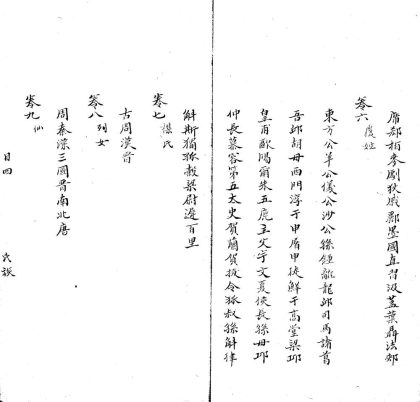 席郗栢麥劇狄戚鄹墨國直習汲蓋葉聶法郟
卷六 復姓
東方公羊公儀公沙公孫鍾離龍邱司馬諸葛
吾邱胡母西門淳于申屠申徒鮮于高堂梁邱
皇甫歐陽爾朱五鹿主父宇文夏侯長孫毋邱
仲長慕容第五太史賀蘭賀拔令狐叔孫斛律
斛斯獨孤穀梁尉遲百里
卷七 諜氏
古周漢晉
卷八 列女
周秦漢三國晉南北唐
卷九 仙
目四 氏族